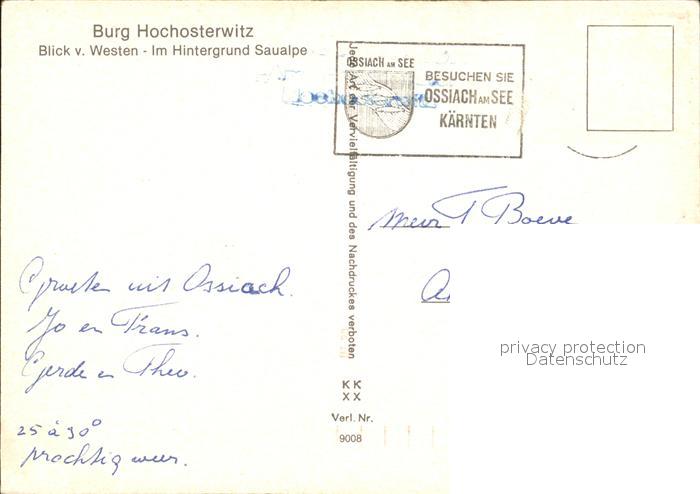 Burg Hochosterwitz
Blick v. Westen - Im Hintergrund Saualpe
OSSIACH AM SEE
BESUCHEN SIE
OSSIACH AM SEE
KÄRNTEN
Hochosterwitz
Jede Art der Vervielfältigung und des Nachdruckes verboten
Mevr T Boeve
Groeten uit Ossiach.
Jo en Frans.
Gerde en Theo.
25 à 30°
prachtig weer.
privacy protection
Datenschutz
KK
XX
Verl. Nr.
9008